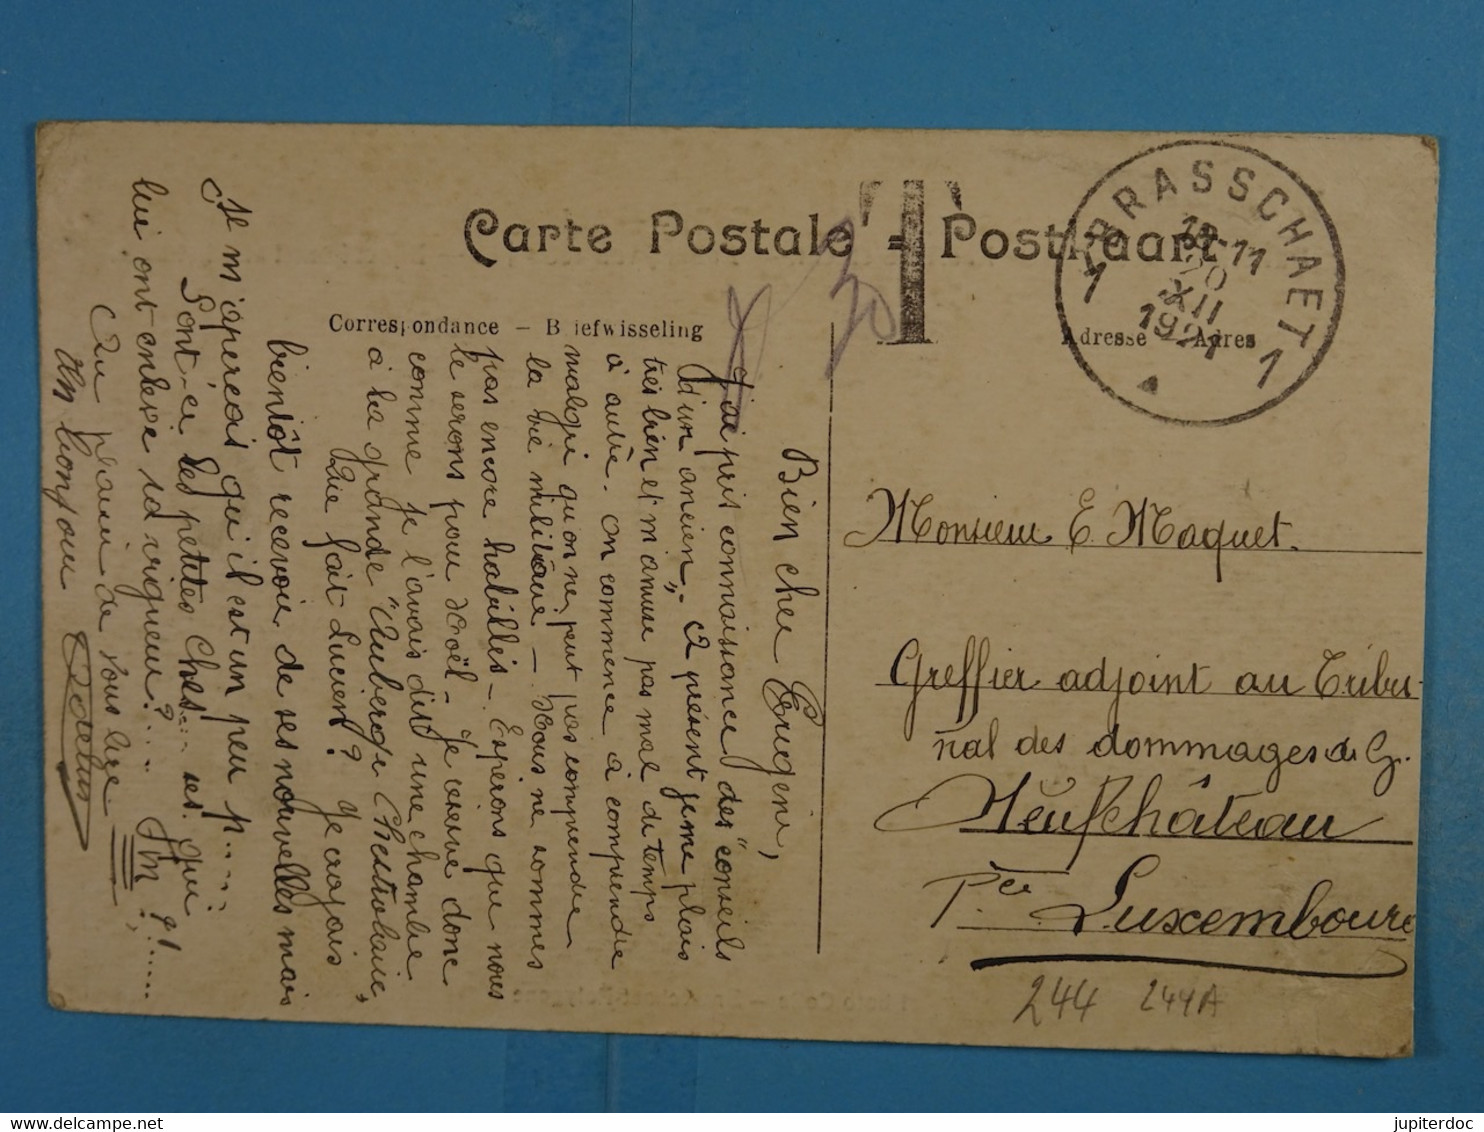 Carte Postale - Postkaart
Correspondance - Briefwisseling
Adresse - Adres
BRASSCHAET
1 1
11
20
XII
1921
T
30
Bien cher Eugène,
J'ai pris connaissance des "conseils
d'un ancien„ - A présent je me plais
très bien et m'amuse pas mal de temps
à autre. On commence à comprendre
malgré qu'on ne peut pas comprendre
la vie militaire - Nous ne sommes
pas encore habillés - Espérons que nous
le serons pour Noël - Je réserve donc
comme je l'avais dit une chambre
à la grande "Auberge
Que fait Lucien? Je croyais
bientôt recevoir de ses nouvelles mais
Il m'aperçois qu'il est un peu p.....
Sont-ce les petites Ches.... ses. qui
lui ont enlevé sa vigueur?... Hm? !.....
Au plaisir de vous lire
Un bonjour
Monsieur E. Maquet.
Greffier adjoint au Tribu-
nal des dommages de G.
Neufchâteau
Pce Luxembourg
244 244A
jupiterdoc